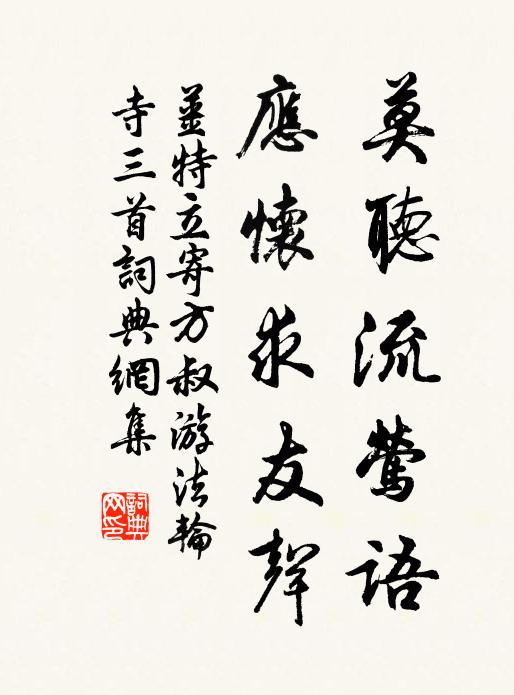 莫聽流鶯語
應懷求友聲
姜特立寄方叔游法輪
寺三首詞典網集
詞典
网印